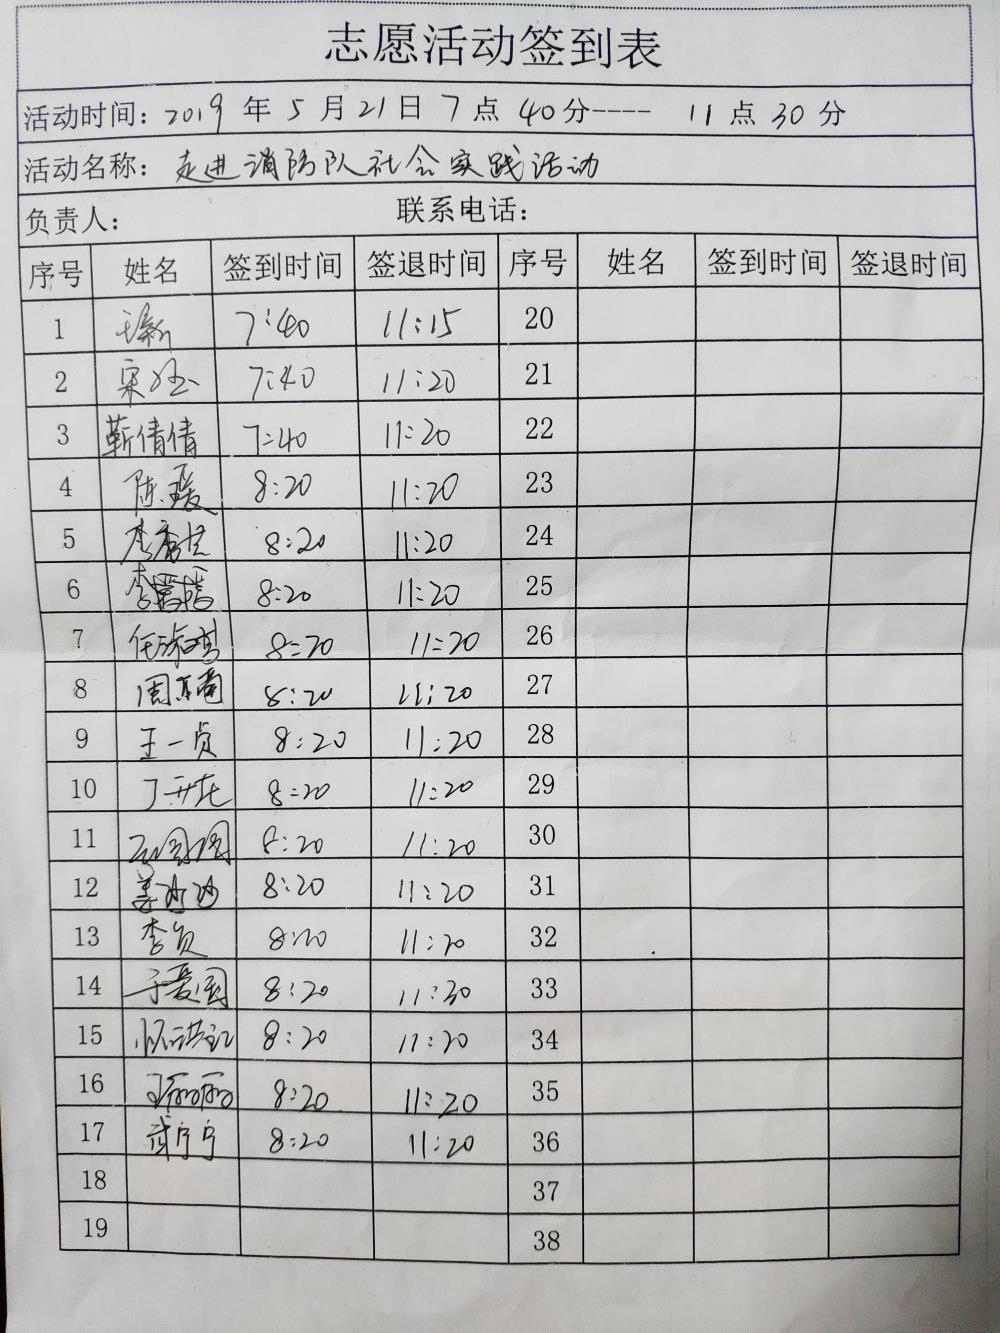 志愿活动签到表
活动时间: 2019 年 5 月 21 日 7 点 40 分---- 11 点 30 分
活动名称: 走进消防队社会实践活动
负责人: 联系电话:
序号 姓名 签到时间 签退时间 序号 姓名 签到时间 签退时间
1 7:40 11:15 20
2 宋 7:40 11:20 21
3 靳倩倩 7:40 11:20 22
4 陈瑗 8:20 11:20 23
5 8:20 11:20 24
6 李 8:20 11:20 25
7 任 8:20 11:20 26
8 周 8:20 11:20 27
9 王一贞 8:20 11:20 28
10 丁开花 8:20 11:20 29
11 8:20 11:20 30
12 姜 8:20 11:20 31
13 李贞 8:20 11:20 32
14 于爱国 8:20 11:30 33
15 8:20 11:20 34
16 王丽丽 8:20 11:20 35
17 武宁宁 8:20 11:20 36
18 37
19 38